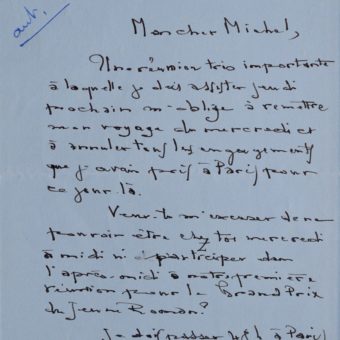 aut.
Mon cher Michel,
Une réunion très importante
à laquelle je dois assister jeudi
prochain m'oblige à remettre
mon voyage du mercredi et
à annuler tous les engagements
que j'avais pris à Paris pour
ce jour-là.
Veux-tu m'excuser de ne
pouvoir être chez toi mercredi
à midi ni participer dans
l'après-midi à notre première
réunion pour le Grand Prix
du Jeune Roman?
Je dois passer à Paris